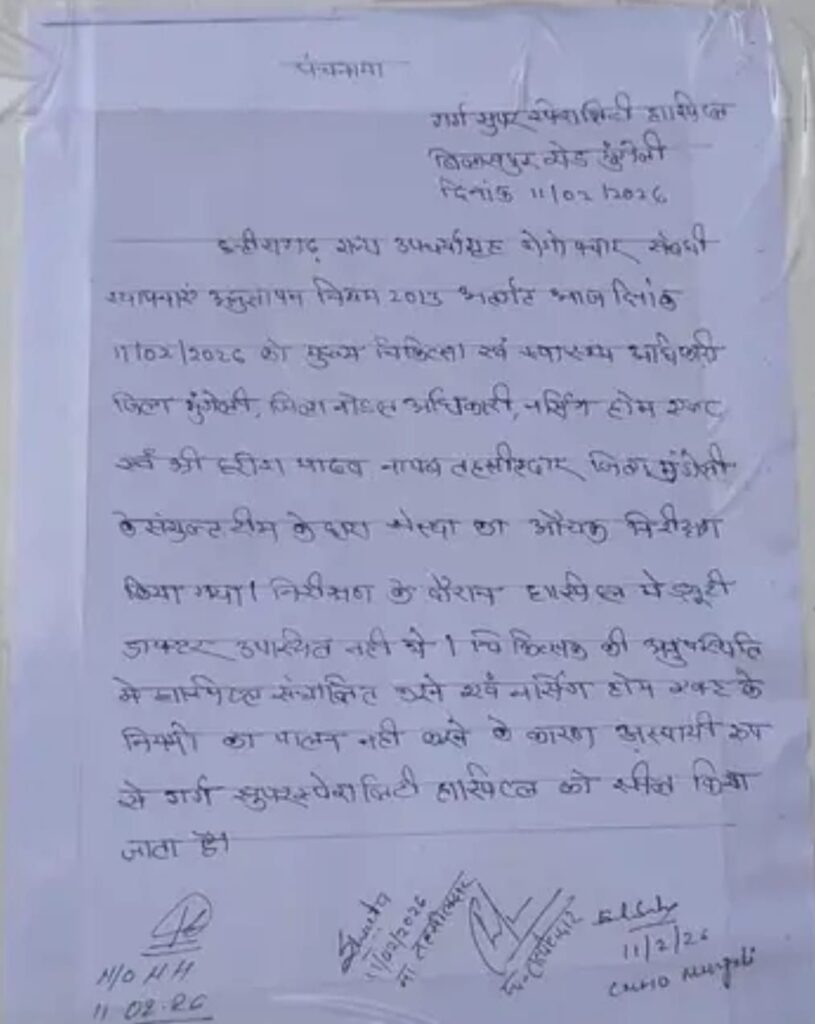 पंचनामा
गर्ग सुपर स्पेशलिटी हास्पिटल
बिलासपुर रोड मुंगेली
दिनांक 11/02/2026
छत्तीसगढ़ राज्य उपचर्यागृह रोगोपचार संबंधी
स्थापनाएं अनुज्ञापन नियम 2013 अंतर्गत आज दिनांक
11/02/2026 को मुख्य चिकित्सा एवं स्वास्थ्य अधिकारी
जिला मुंगेली, जिला नोडल अधिकारी, नर्सिंग होम एक्ट
एवं श्री हरीश यादव नायब तहसीलदार जिला मुंगेली
के संयुक्त टीम के द्वारा संस्था का औचक निरीक्षण
किया गया। निरीक्षण के दौरान हास्पिटल मे ड्यूटी
डाक्टर उपस्थित नही थे। चिकित्सक की अनुपस्थिति
मे हास्पिटल संचालित करने एवं नर्सिंग होम एक्ट के
नियमो का पालन नही करने के कारण अस्थायी रूप
से गर्ग सुपरस्पेशलिटी हास्पिटल को सील किया
जाता है।
N/O NH
11.02.26
11/02/2026
ना. तहसीलदार
11/2/26
CMHO Mungeli